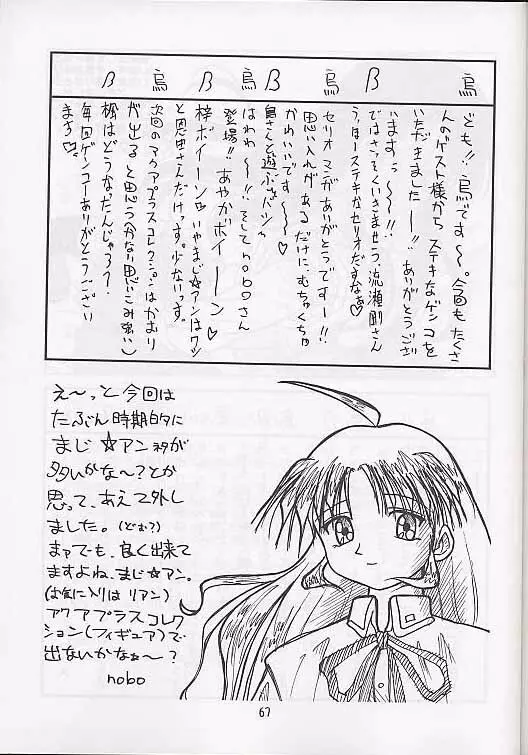 烏 β 烏 β 烏 β 烏 β
ども!!烏です〜。今回もたくさ
んのゲスト様からステキなゲンコを
いただきました—!!ありがとうござ
いますぅ〜!!
ではさっそくいきませう、流瀬剛さん
う、ほーステキなセリオだすなぁ♡
セリオマンガありがとうでスー!!
思い入れがあるだけにむちゃくちゃ
かわいいです〜〜♡
島さんと遊ぶ
はわわ〜!!そしてnoboさん
登場!!あやかボイーン
梓ボイーン♡いやまじ☆アンはワシ
と恩田さんだけっす。少ないっす。
次回のアクアプラスコレクションはかおり
が出ると思う(分ない思いこみ強い)
楓はどうなったんじゃろ?
毎回ゲンコーありがとうござい
ます♡
え〜っと今回は
たぶん時期的に
まじ☆アンネタが
多いかな〜?とか
思って、あえて外し
ました。(どむ?)
まァでも、良く出来て
ますよね、まじ☆アン。
(お気に入りはリアン)
アクアプラスコレク
ション(フィギュア)で
出ないかなぁ〜?
nobo
67